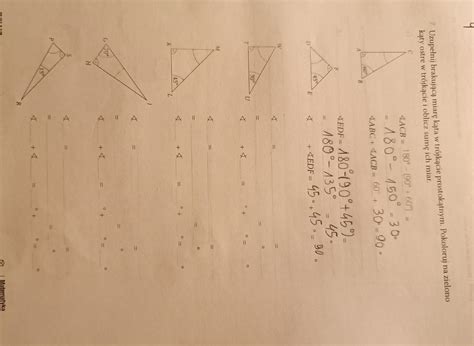 7. Uzupełnij brakującą miarę kąta w trójkącie prostokątnym. Pokoloruj na zielono
kąty ostre w trójkącie i oblicz sumę ich miar.
C
A
B
∢ACB = 180° − (90° + 60°) =
= 180° − 150° = 30°
∢ABC + ∢ACB = 60° + 30° = 90°
F
D
E
45°
∢EDF = 180° − (90° + 45°) =
= 180° − 135° = 45°
∢ + ∢EDF = 45° + 45° = 90°
W
T
U
∢ = =
= ° − ° = °
∢ + ∢ = ° + ° = °
M
K
L
45°
∢ = =
= ° − ° = °
∢ + ∢ = ° + ° = °
J
G
H
∢ = =
= ° − ° = °
∢ + ∢ = ° + ° = °
S
P
R
∢ = =
= ° − ° = °
∢ + ∢ = ° + ° = °
Matematyka